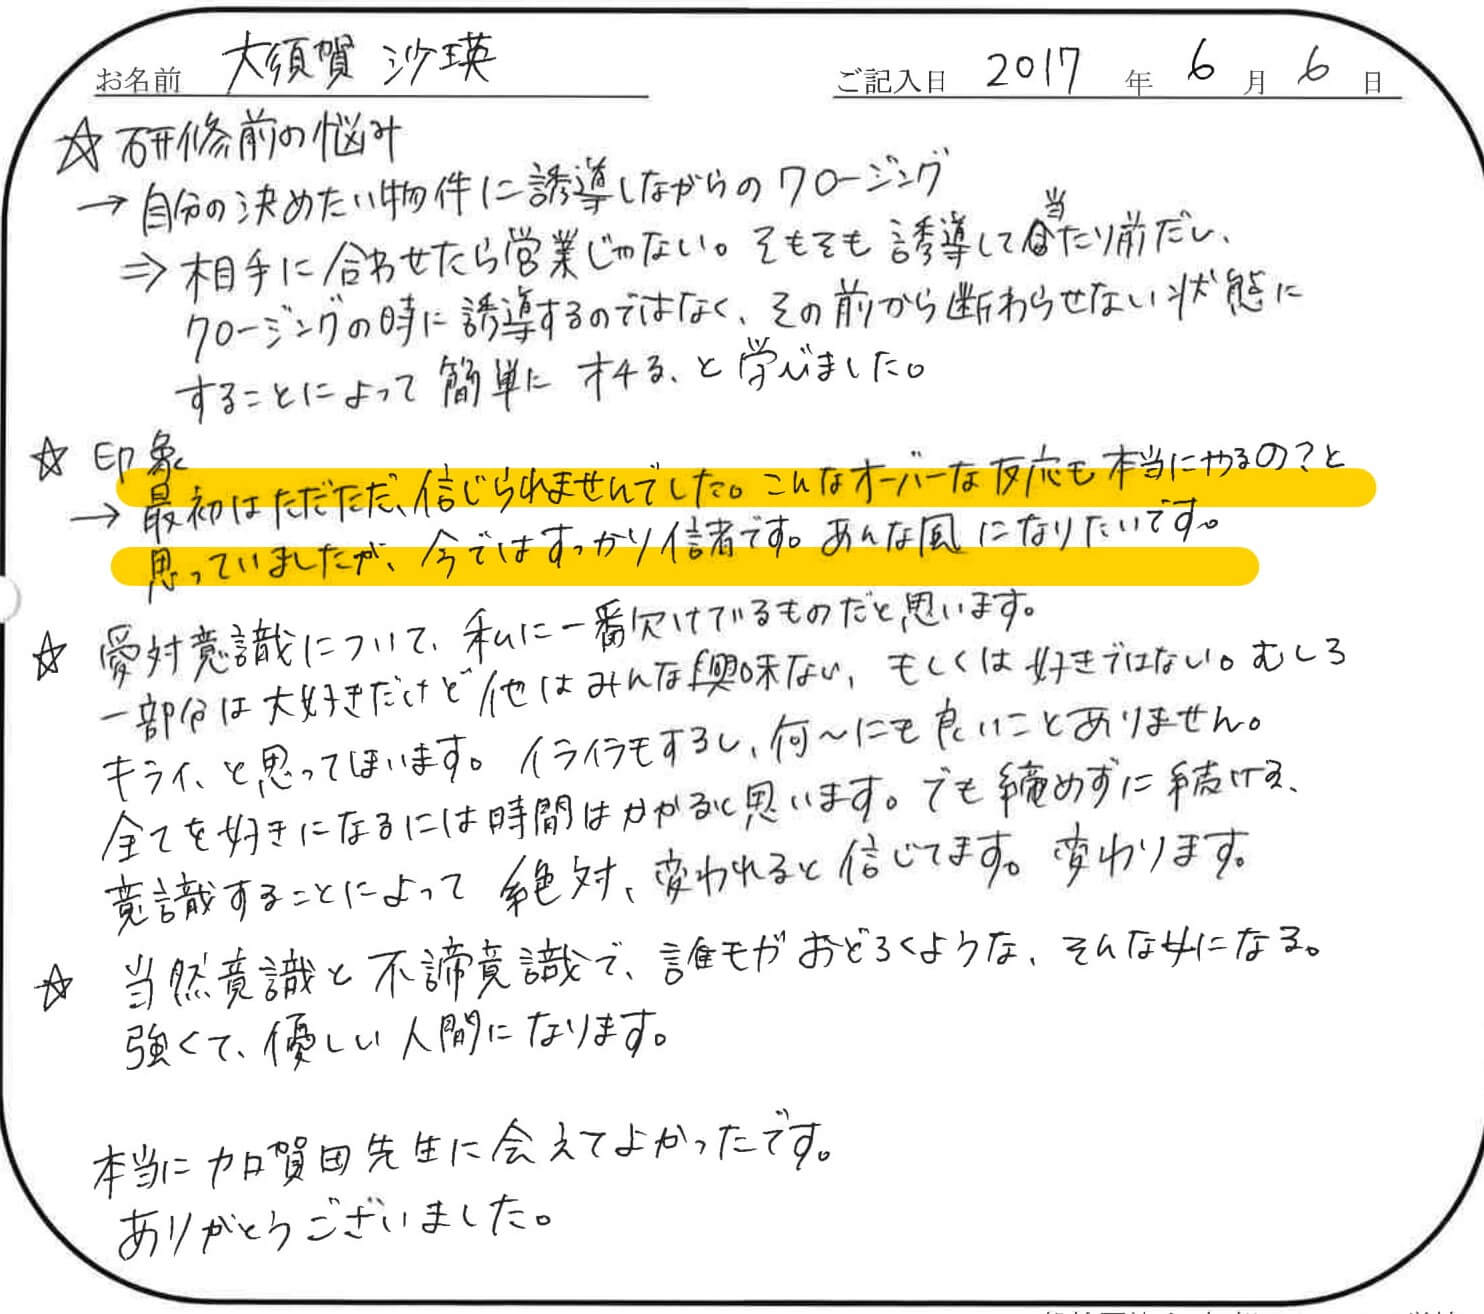 お名前 大須賀 沙瑛 ご記入日 2017 年 6 月 6 日
☆ 研修前の悩み
→ 自分の決めたい物件に誘導しながらのクロージング
⇒ 相手に合わせたら営業じゃない。そもそも誘導して当たり前だし、
クロージングの時に誘導するのではなく、その前から断わらせない状態に
することによって簡単にオチる、と学びました。
☆ 印象
→ 最初はただただ、信じられませんでした。こんなオーバーな反応も本当にやるの?と
思っていましたが、今ではすっかり信者です。あんな風になりたいです。
☆ 愛対意識について、私に一番欠けているものだと思います。
一部分は大好きだけど他はみんな興味ない、もしくは好きではない。むしろ
キライ、と思ってしまいます。イライラもするし、何〜にも良いことありません。
全てを好きになるには時間はかかると思います。でも締めずに続ける、
意識することによって絶対、変われると信じてます。変わります。
☆ 当然意識と不諦意識で、誰もがおどろくような、そんな女になる。
強くて、優しい人間になります。
本当に加賀田先生に会えてよかったです。
ありがとうございました。